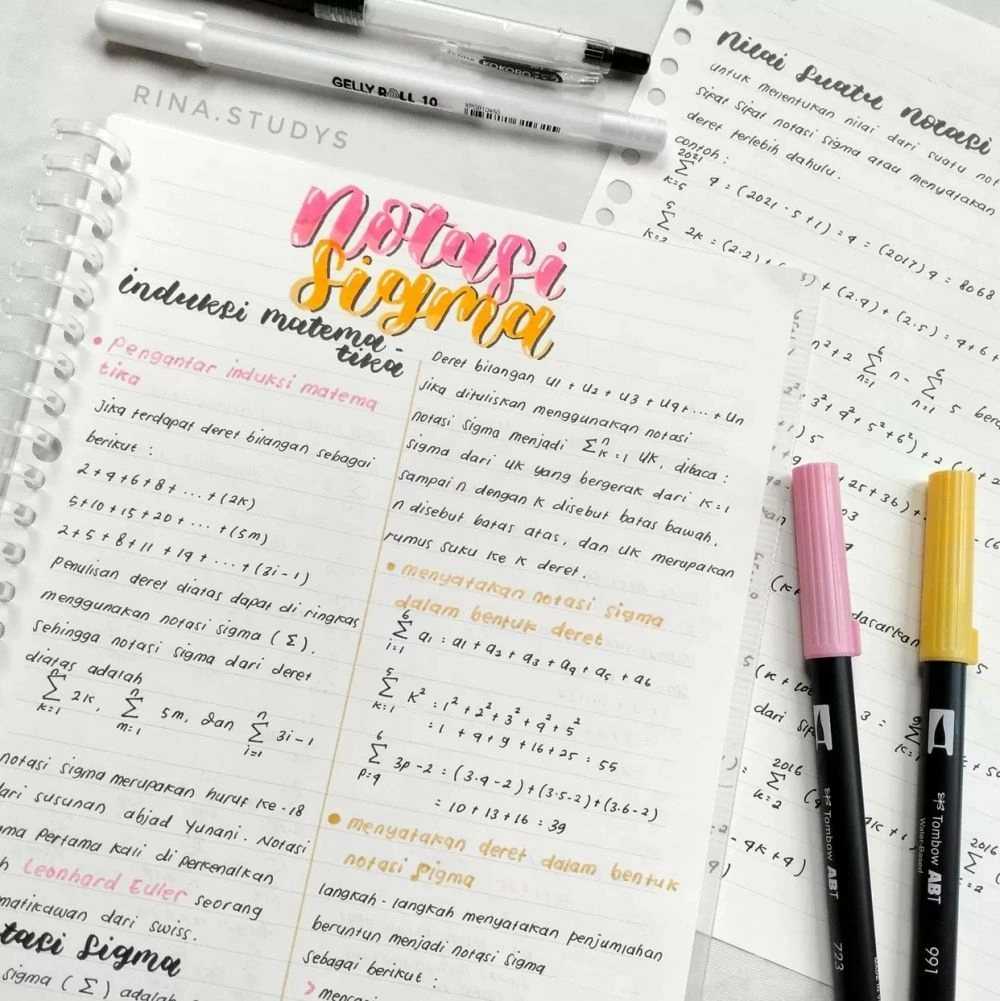 GELLY ROLL 10
KOKORO
RINA.STUDYS
notasi
sigma
induksi matema-
tika
• pengantar induksi matema
tika
Jika terdapat deret bilangan sebagai
berikut :
2 + 4 + 6 + 8 + ... + (2k)
5 + 10 + 15 + 20 + ... + (5m)
2 + 5 + 8 + 11 + 14 + ... + (3i - 1)
penulisan deret diatas dapat di ringkas
menggunakan notasi sigma (Σ).
Sehingga notasi sigma dari deret
diatas adalah
n n n
Σ 2k, Σ 5m, dan Σ 3i - 1
k=1 m=1 i=1
notasi sigma merupakan huruf ke-18
dari susunan abjad Yunani. Notasi
pertama kali di perkenalkan
Leonhard Euler seorang
matikawan dari swiss.
tasi sigma
sigma (Σ) adalah
Deret bilangan u1 + u2 + u3 + u4 + ... + un
jika dituliskan menggunakan notasi
notasi sigma menjadi Σ^n_k=1 uk, dibaca :
sigma dari uk yang bergerak dari k=1
sampai n dengan k disebut batas bawah,
n disebut batas atas, dan uk merupakan
rumus suku ke k deret.
• menyatakan notasi sigma
dalam bentuk deret
6
Σ a1 = a1 + a2 + a3 + a4 + a5 + a6
i=1
5
Σ k² = 1² + 2² + 3² + 4² + 5²
k=1
= 1 + 4 + 9 + 16 + 25 = 55
6
Σ 3p - 2 = (3.4 - 2) + (3.5 - 2) + (3.6 - 2)
p=4
= 10 + 13 + 16 = 39
• menyatakan deret dalam bentuk
notasi sigma
langkah - langkah menyatakan penjumlahan
beruntun menjadi notasi sigma
sebagai berikut :
nilai suatu notasi
untuk menentukan nilai dari suatu not
sifat sifat notasi sigma atau menyatakan
deret terlebih dahulu.
contoh :
2021
Σ 4 = (2021 - 5 + 1) = 4 = (2017) 4 = 8068
k=5
5
Σ 2k = (2.2) + (2.4) + (2.5) = 4 + 6 +
k=2
n² + 2 Σ^6_n=1 n - Σ^6_n=1 5
2² + 3² + 4² + 5² + 6²) + 2 (1 + 2
+ 25 + 36) +
dasarkan
dari
2016
Σ
k=2
- 4k + 4)
2016
Tombow ABT
723
Tombow ABT
Water-Based
991